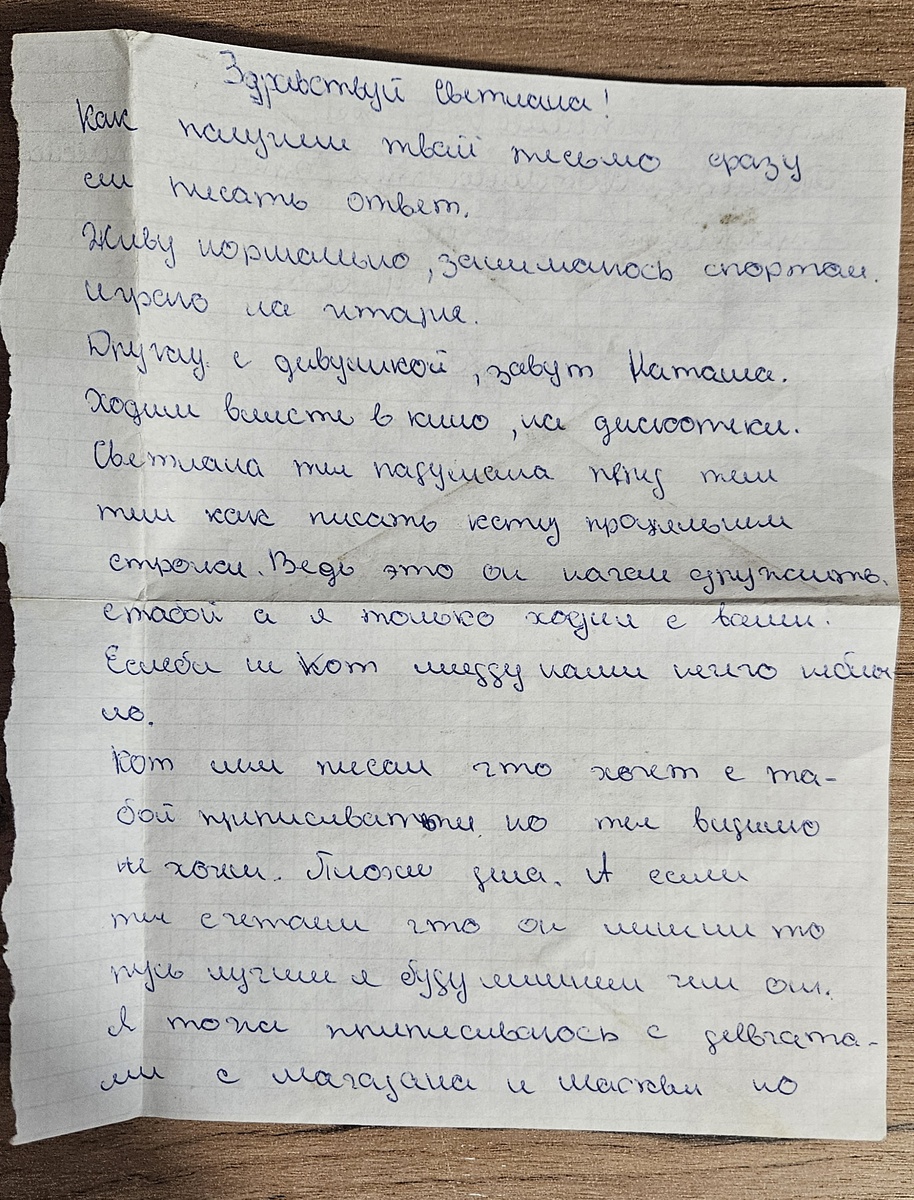 Здравствуй Светлана!
Как палучил твай письмо сразу
сил писать ответ.
Живу нормально, занимаюсь спортам.
играю на гитаре.
Дружу с дивушкой, завут Наташа.
Ходим вместе в кино, на дискотеки.
Светлана ты падумала пред тем
тем как писать коту
строки. Ведь это он начал дружить.
стабой а я только ходил с вами.
Еслеби не Кот между нами ничго небы
ло.
Кот мне писал что хочет с та-
бой приписыват но ты видимо
не хочи. Плохи дила. А если
ты счетаеш что он лишни то
пусь лучши я буду лишним чем он.
Я тожа приписываюсь с девчата-
ми с Магадана и Масквы но